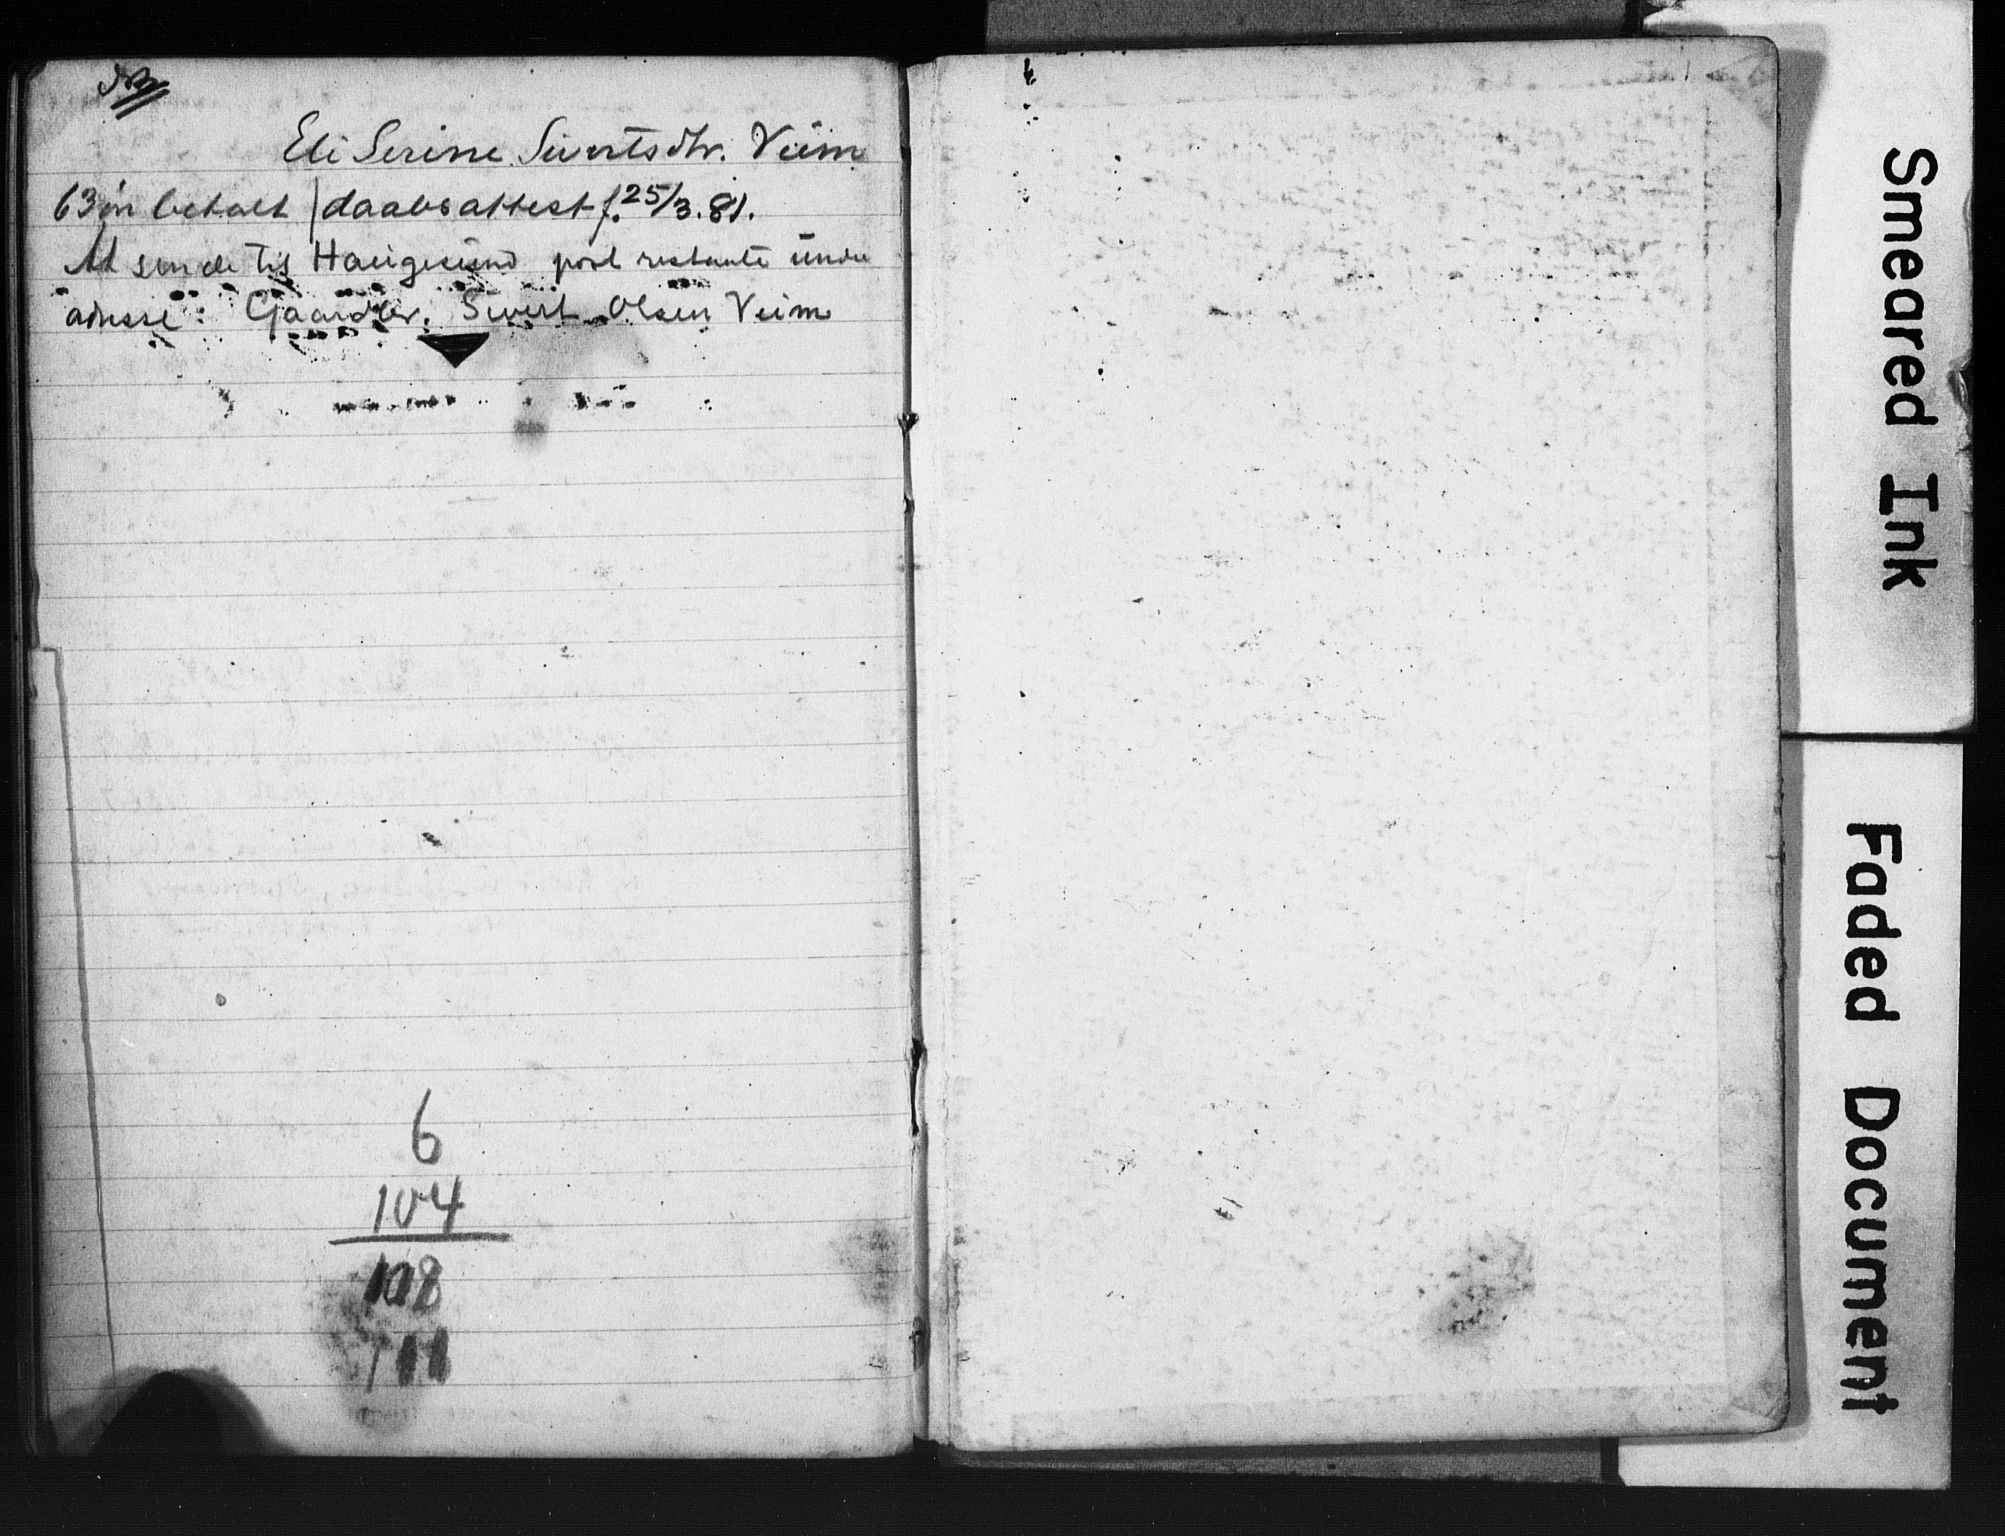 Eli Serine Sivertsdtr. Veim
63 ør betalt / daabsattest f. 25/3.81.
At sende til Haugesund post restante under
adresse: Gaardbr. Sivert Olsen Veim
6
104
108
Smeared Ink
Faded Document